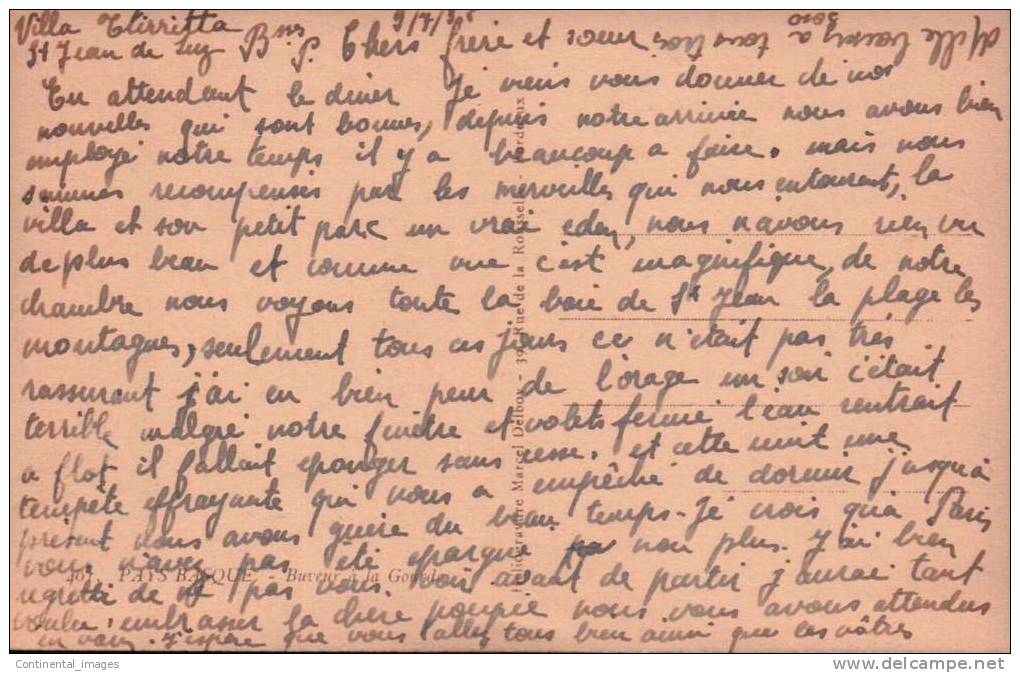 Villa Etirritta 9/7/3
St Jean de Luz Bses P. Chers frère et sœur
Mille baisers a tous trois
En attendant le diner Je viens vous donner de nos
nouvelles qui sont bonnes, depuis notre arrivée nous avons bien
employé notre temps il y a beaucoup a faire. mais nous
sommes recompensés par les merveilles qui nous entourent, la
villa et son petit parc un vrai eden, nous n'avons rien vu
de plus beau et comme vue c'est magnifique, de notre
chambre nous voyons toute la baie de St Jean la plage les
montagnes, seulement tous ces jours ce n'était pas très
rassurant j'ai eu bien peur de l'orage un soir c'était
terrible malgré notre fenêtre et volets fermé l'eau rentrait
a flot il fallait eponger sans cesse. et cette nuit une
tempête effrayante qui nous a empêché de dormir jusqu'à
présent nous avons guère du beau temps. Je crois qu'a Paris
vous n'avez pas été epargné non plus. J'ai bien
regretté de pas vous voir avant de partir j'aurai tant
voulu embrasser la chère poupée nous vous avons attendus
en vain. J'espère que vous allez tous bien ainsi que les vôtres
401. PAYS BASQUE - Buveur à la Gourde
Marcel Delboy - 39, Rue de la Rousselle - Bordeaux
Continental_images
www.delcampe.net